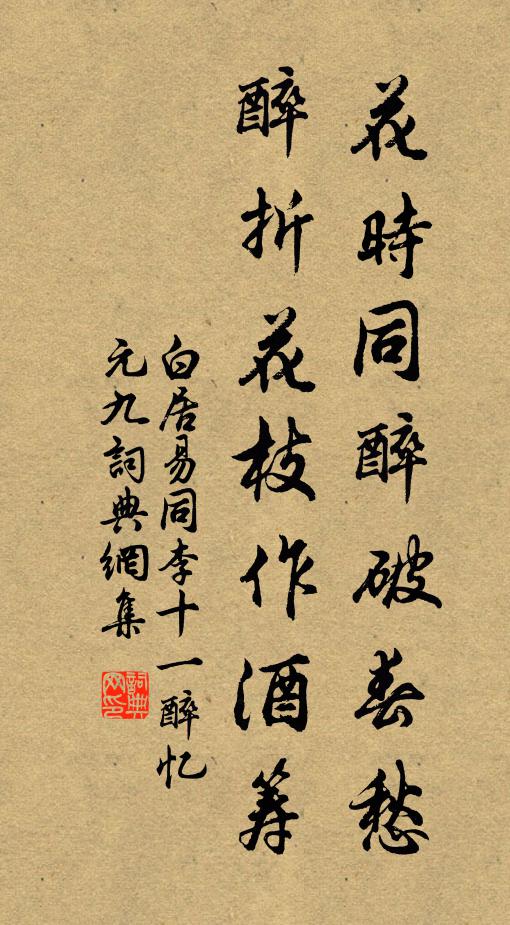 花時同醉破春愁
醉折花枝作酒筹
白居易同李十一醉忆
元九詞典網集
詞典网印